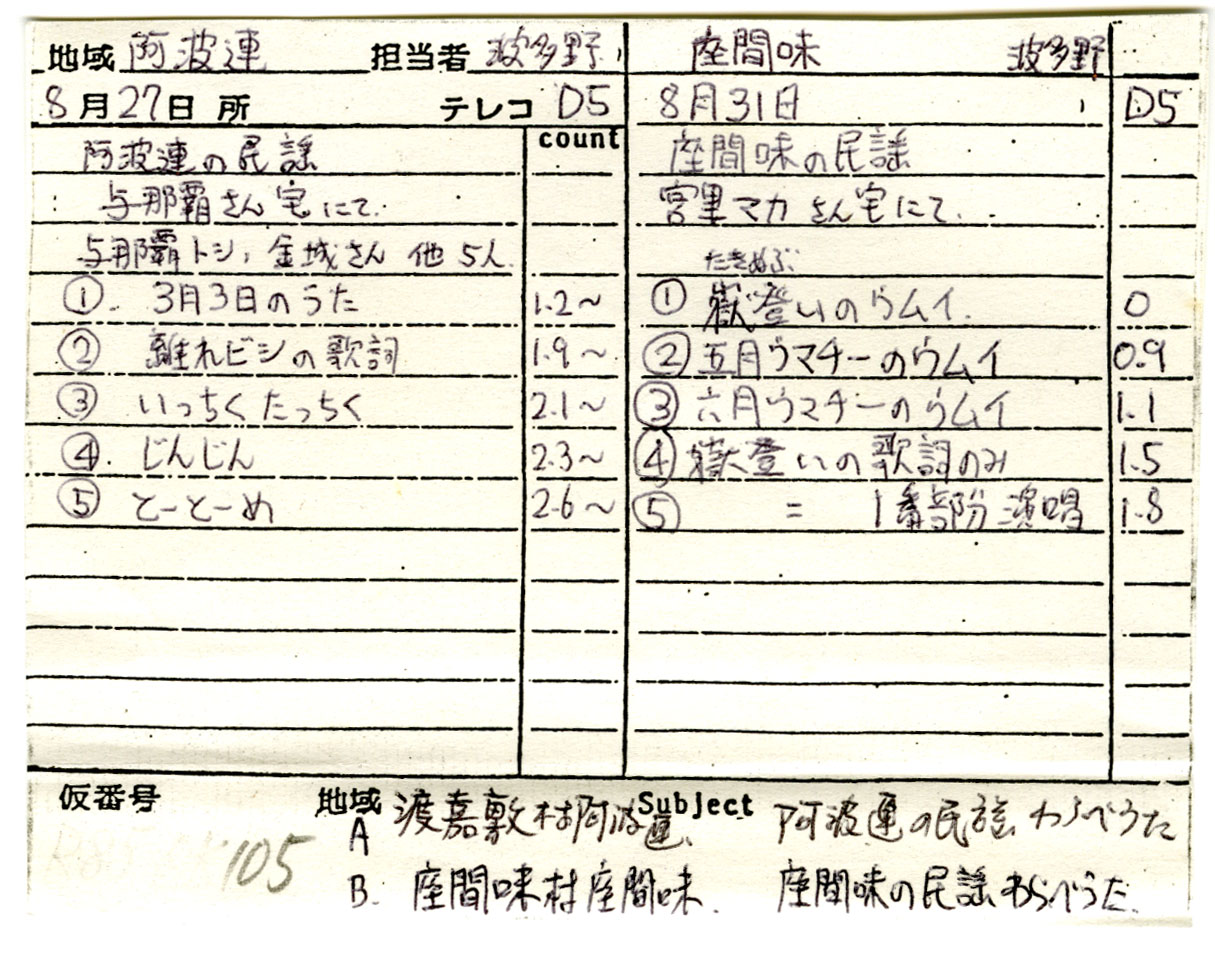 地域 阿波連 担当者 波多野
8月27日 所 テレコ D5
count
阿波連の民謡
与那覇さん宅にて.
与那覇トシ, 金城さん 他 5人.
① 3月3日のうた 1.2～
② 離れビシの歌詞 1.9～
③ いっちくたっちく 2.1～
④ じんじん 2.3～
⑤ とーとーめ 2.6～
座間味 波多野
8月31日 D5
座間味の民謡
宮里マカさん宅にて.
たきぬぶ
① 嶽登いのウムイ. 0
② 五月ウマチーのウムイ 0.9
③ 六月ウマチーのウムイ 1.1
④ 嶽登いの歌詞のみ 1.5
⑤ 〃 1番部分演唱 1.8
仮番号 105
地域 Subject
A 渡嘉敷村阿波連. 阿波連の民謡. わらべうた
B. 座間味村座間味. 座間味の民謡わらべうた.